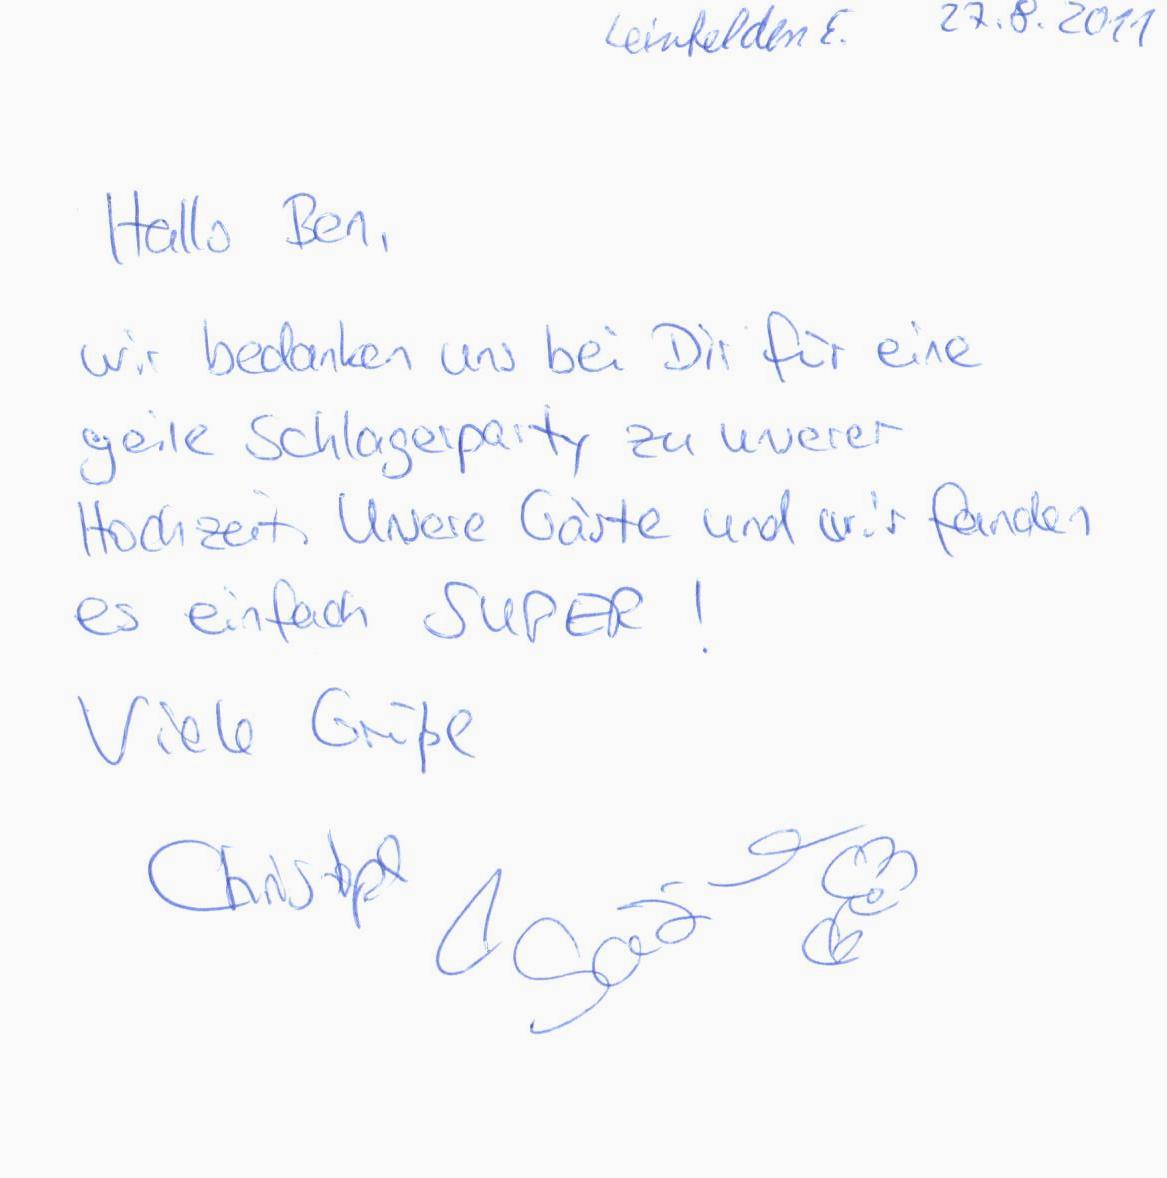 Leinfelden E. 27.8.2011
Hallo Ben,
wir bedanken uns bei Dir für eine
geile Schlagerparty zu unserer
Hochzeit. Unsere Gäste und wir fanden
es einfach SUPER !
Viele Grüße
Christoph